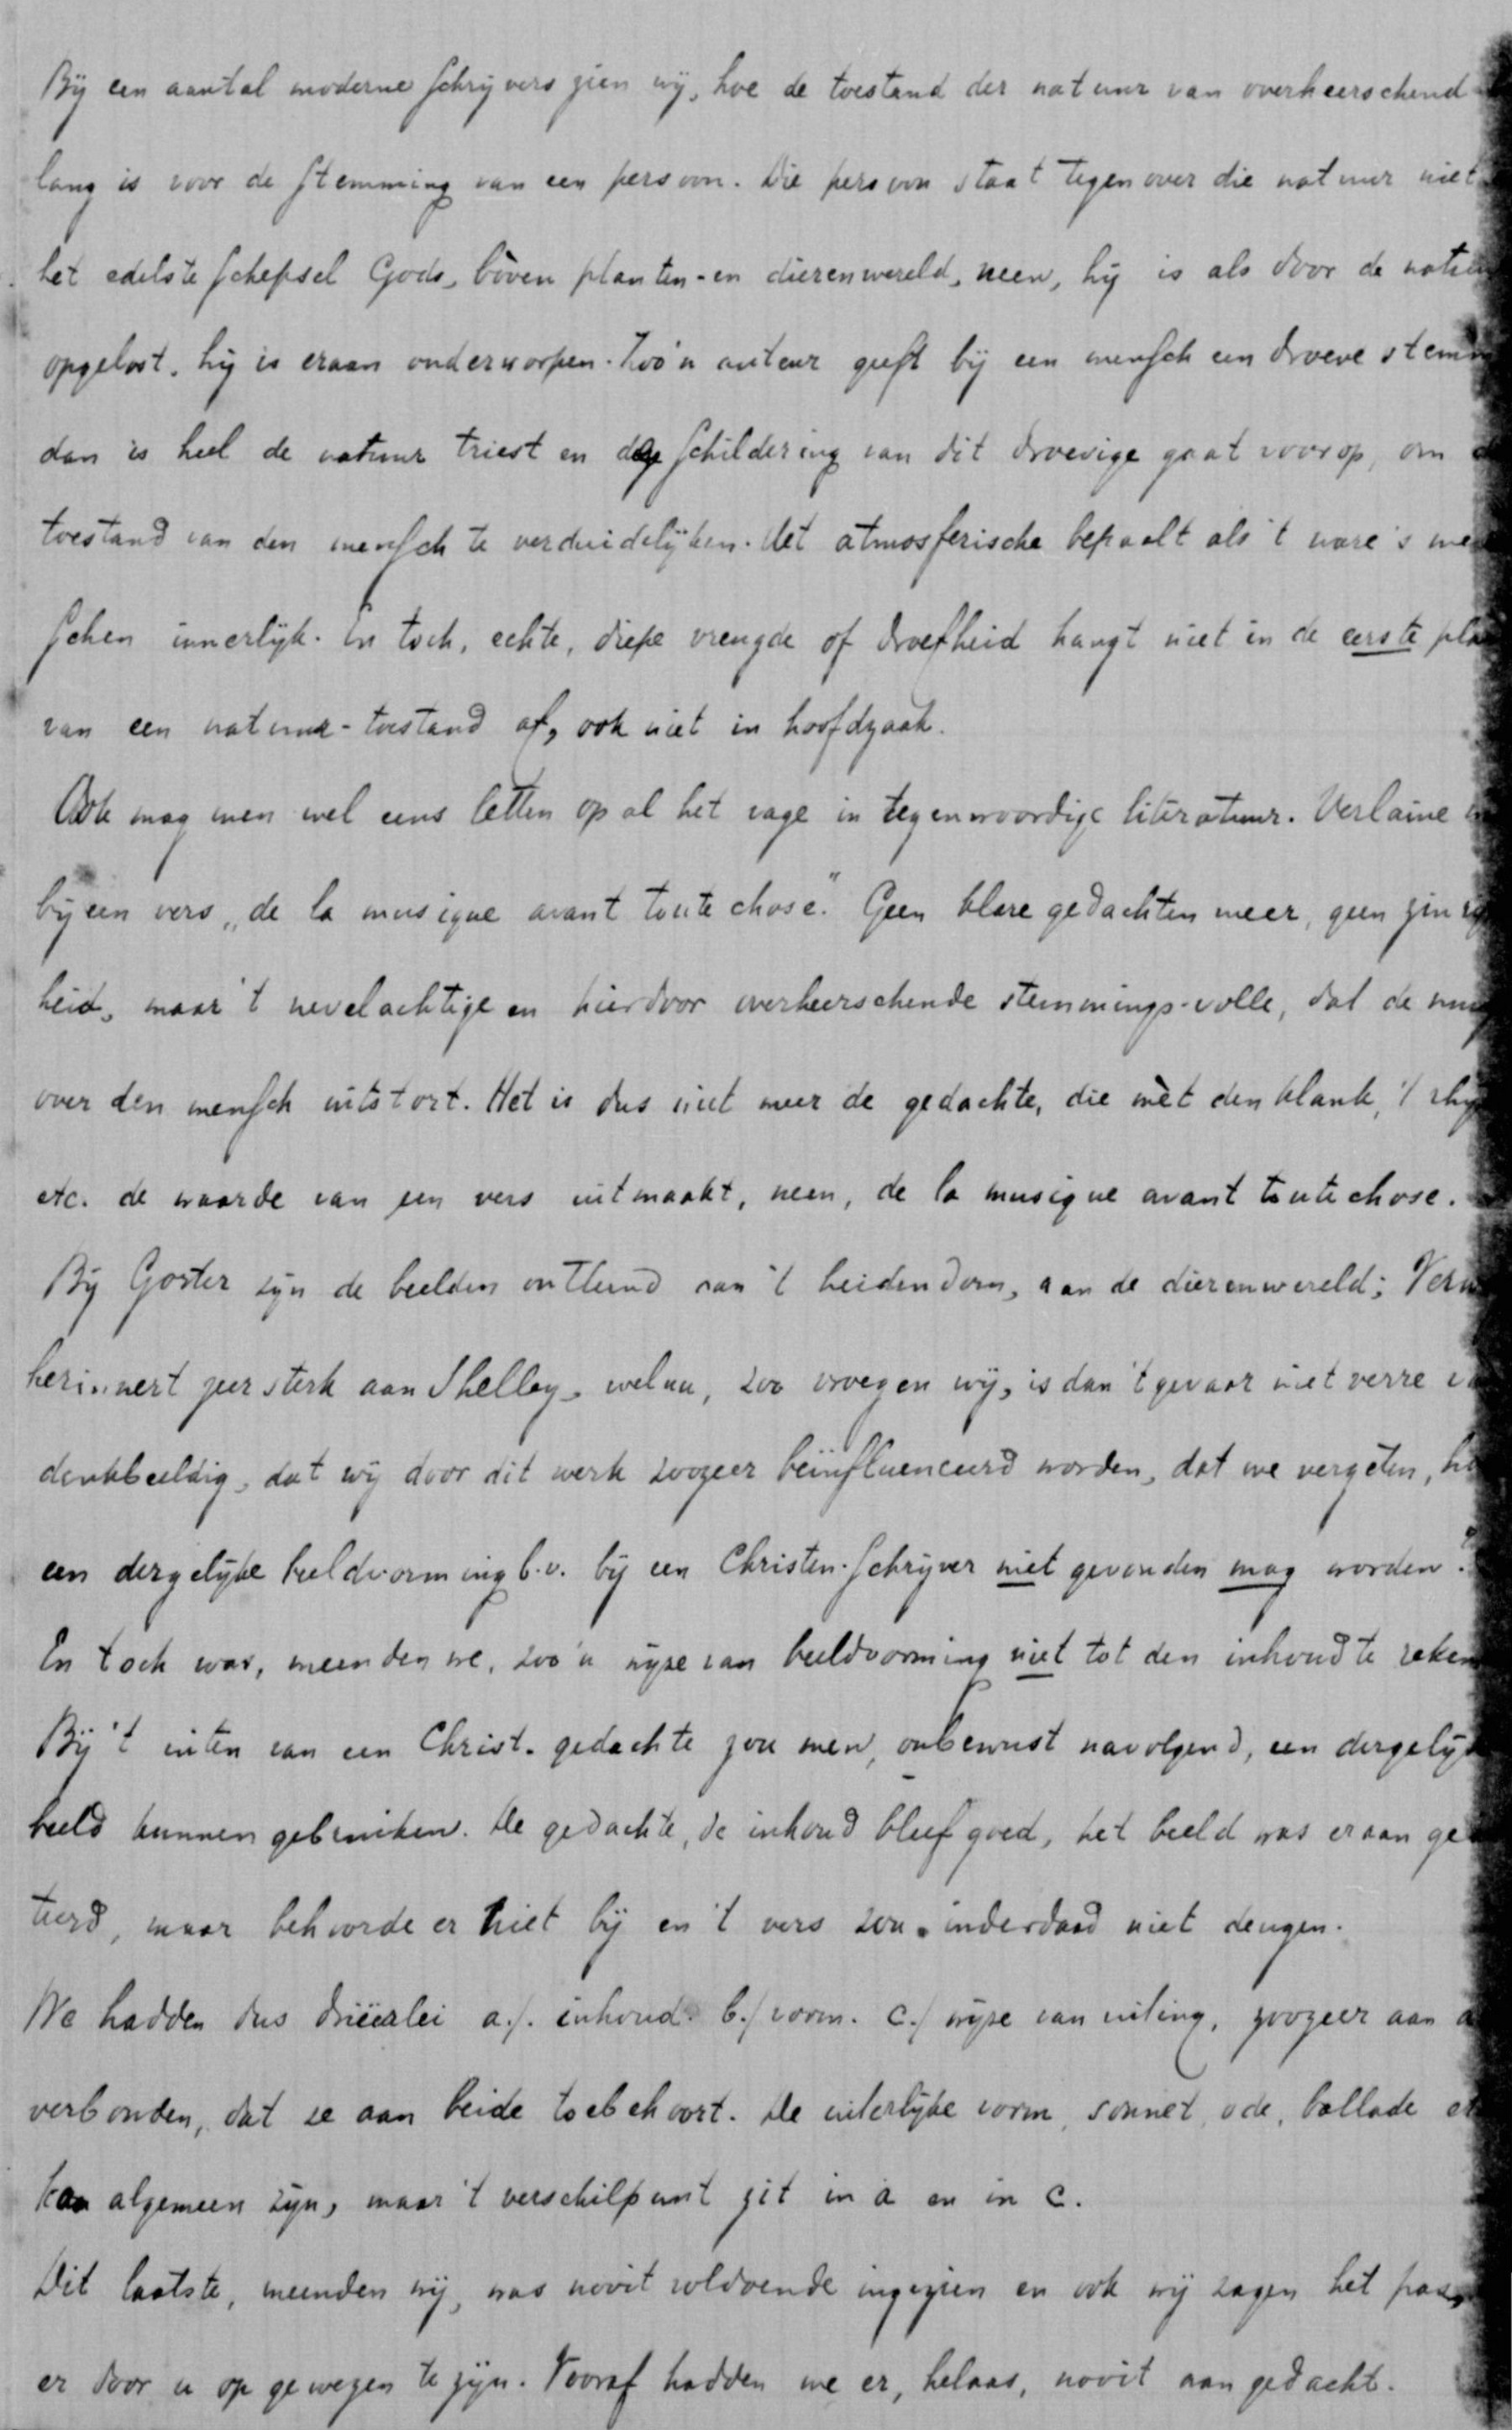 Bij een aantal moderne schrijvers zien wij, hoe de toestand der natuur van overheerschend
lang is voor de stemming van een persoon. Die persoon staat tegenover die natuur niet
het edelste schepsel Gods, bòven planten- en dierenwereld, neen, hij is als door de natuu
opgelost, hij is eraan onderworpen. Zoo'n auteur geeft bij een mensch een droeve stemm
dan is heel de natuur triest en de schildering van dit droevige gaat voorop, om d
toestand van den mensch te verduidelijken. Het atmosferische bepaalt als 't ware 's men
schen innerlijk. En toch, echte, diepe vreugde of droefheid hangt niet in de eerste pla
van een natuur-toestand af, ook niet in hoofdzaak.
Ook mag men wel eens letten op al het vage in tegenwoordige literatuur. Verlaine
bij een vers „de la musique avant toute chose." Geen klare gedachten meer, geen
heid, maar 't nevelachtige en hierdoor overheerschende stemmings-volle, dat de
over den mensch uitstort. Het is dus niet meer de gedachte, die mèt den klank, 't
etc. de waarde van een vers uitmaakt, neen, de la musique avant toute chose.
Bij Gorter zijn de beelden ontleend aan 't heidendom, aan de dierenwereld; Verw
herinnert zeer sterk aan Shelley, welnu, zoo vroegen wij, is dan 't gevaar niet verre
denkbeeldig, dat wij door dit werk zoozeer beïnfluenceerd worden, dat we vergeten, ho
een dergelijke beeldvorming b.v. bij een Christen-schrijver niet gevonden mag worden?
En toch was, meenden we, zoo'n wijze van beeldvorming niet tot den inhoud te reken
Bij 't uiten van een Christ. gedachte zou men, onbewust navolgend, een dergelijk
beeld kunnen gebruiken. De gedachte, de inhoud bleef goed, het beeld was eraan ge
teerd, maar behoorde er niet bij en 't vers zou inderdaad niet deugen.
We hadden dus drieërlei a./. inhoud. b./ vorm. c./ wijze van uiting, zoozeer aan a
verbonden, dat ze aan beide toebehoort. De uiterlijke vorm, sonnet, ode, ballade et
kan algemeen zijn, maar 't verschilpunt zit in a en in c.
Dit laatste, meenden wij, was nooit voldoende ingezien en ook wij zagen het pas,
er door u op gewezen te zijn. Vooraf hadden we er, helaas, nooit aan gedacht.